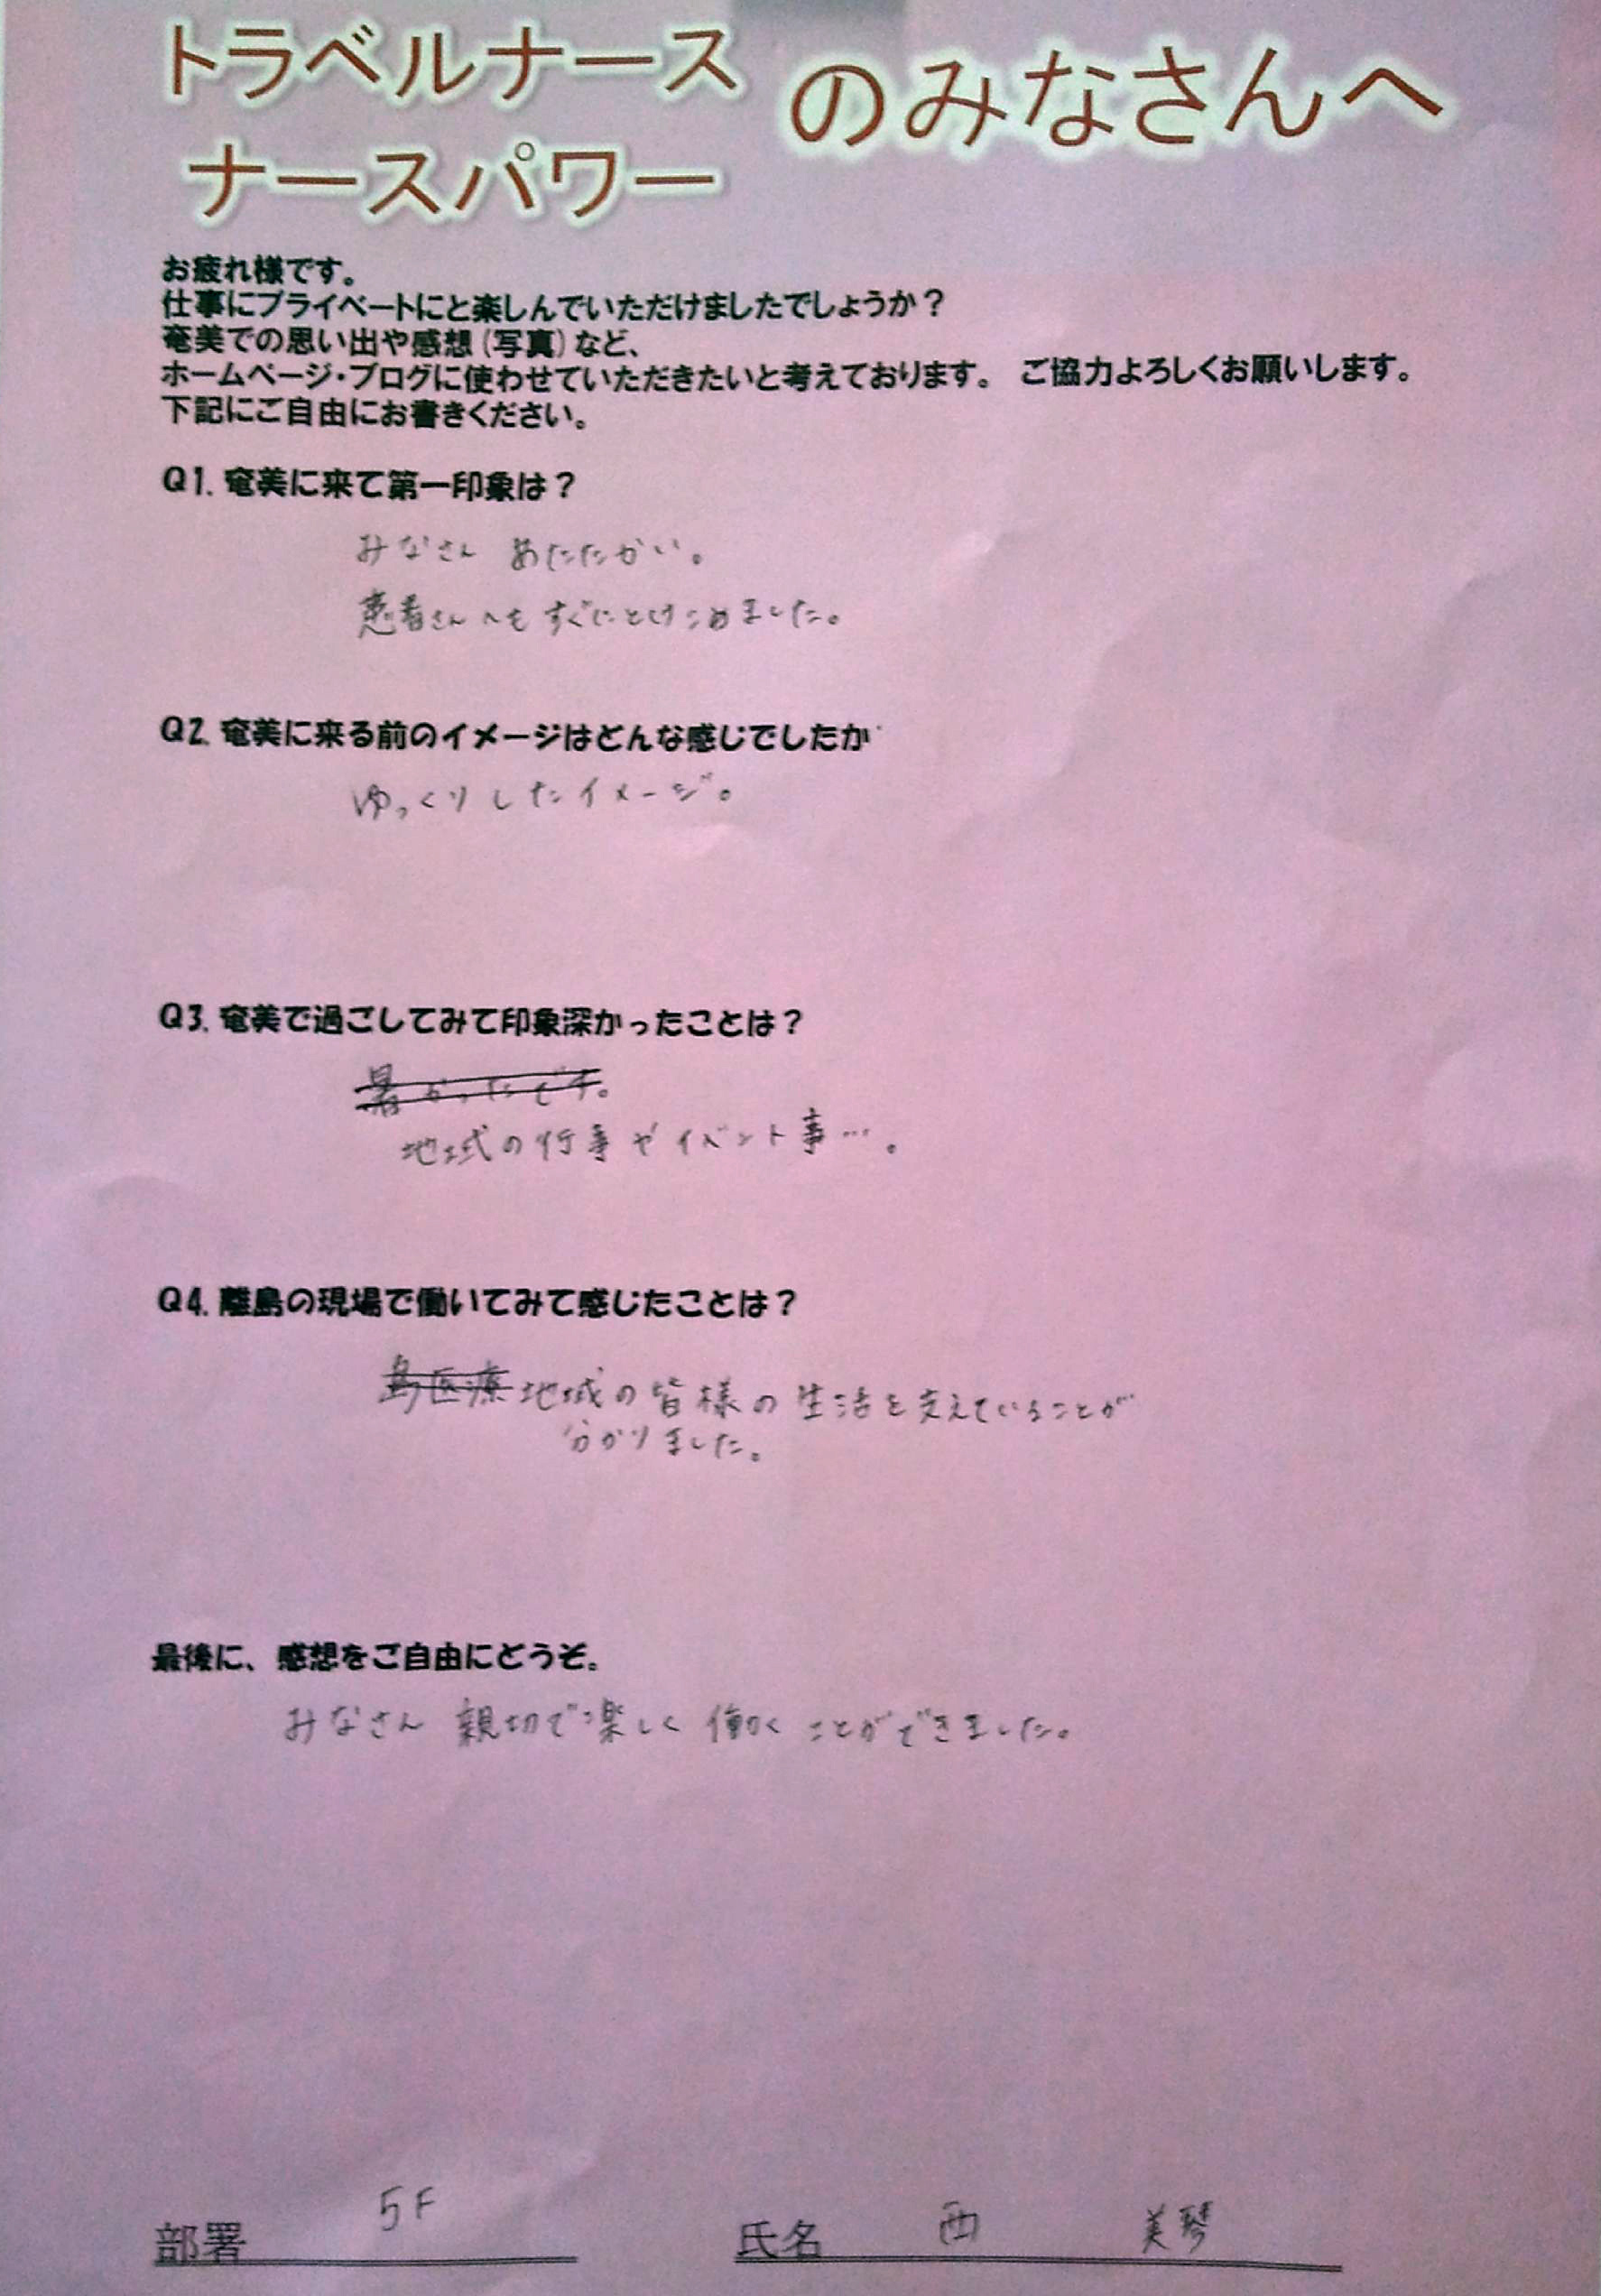 トラベルナース
ナースパワー
のみなさんへ
お疲れ様です。
仕事にプライベートにと楽しんでいただけましたでしょうか？
奄美での思い出や感想(写真)など、
ホームページ・ブログに使わせていただきたいと考えております。 ご協力よろしくお願いします。
下記にご自由にお書きください。
Q1. 奄美に来て第一印象は？
みなさん あたたかい。
患者さんへも すぐにとけこめました。
Q2. 奄美に来る前のイメージはどんな感じでしたか
ゆっくりしたイメージ。
Q3. 奄美で過ごしてみて印象深かったことは？
暑かったです。
地域の行事やイベント事…。
Q4. 離島の現場で働いてみて感じたことは？
島医療 地域の皆様の生活を支えていることが
分かりました。
最後に、感想をご自由にどうぞ。
みなさん 親切で楽しく 働く ことができました。
部署 5F 氏名 西 美琴